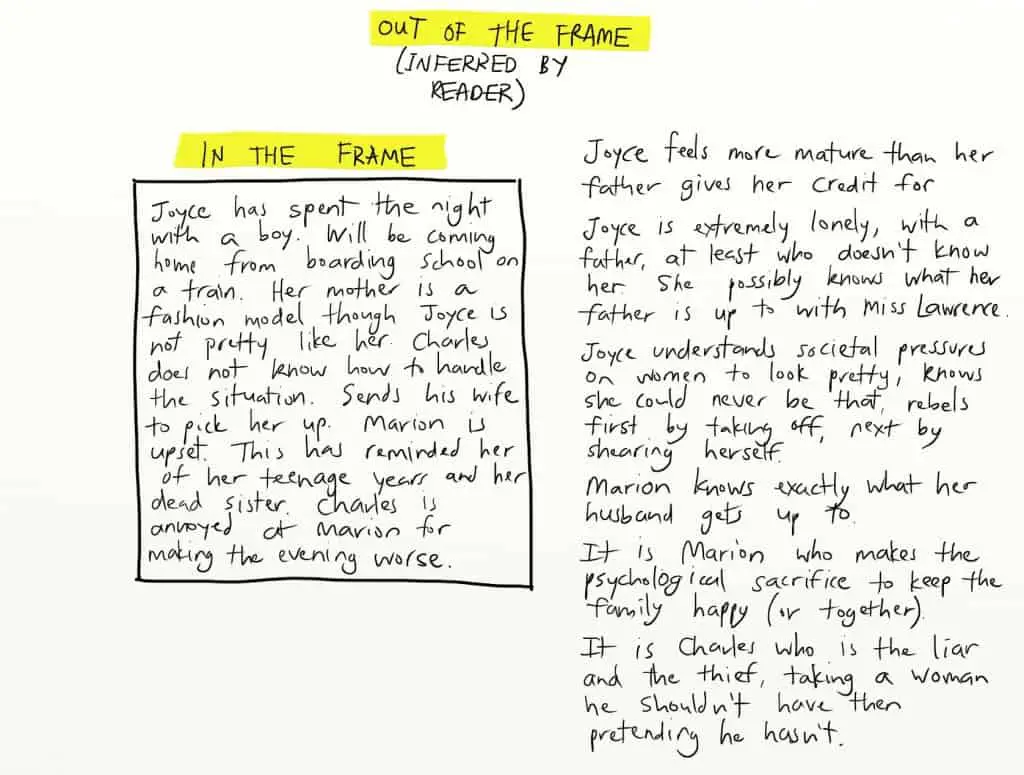 OUT OF THE FRAME
(INFERRED BY
READER)
IN THE FRAME
Joyce has spent the night
with a boy. Will be coming
home from boarding school on
a train. Her mother is a
fashion model though Joyce is
not pretty like her. Charles
does not know how to handle
the situation. Sends his wife
to pick her up. Marion is
upset. This has reminded her
of her teenage years and her
dead sister. Charles is
annoyed at Marion for
making the evening worse.
Joyce feels more mature than her
father gives her credit for
Joyce is extremely lonely, with a
father, at least who doesn't know
her. She possibly knows what her
father is up to with Miss Lawrence.
Joyce understands societal pressures
on women to look pretty, knows
she could never be that, rebels
first by taking off, next by
shearing herself.
Marion knows exactly what her
husband gets up to.
It is Marion who makes the
psychological sacrifice to keep the
family happy (or together).
It is Charles who is the liar
and the thief, taking a woman
he shouldn't have then
pretending he hasn't.